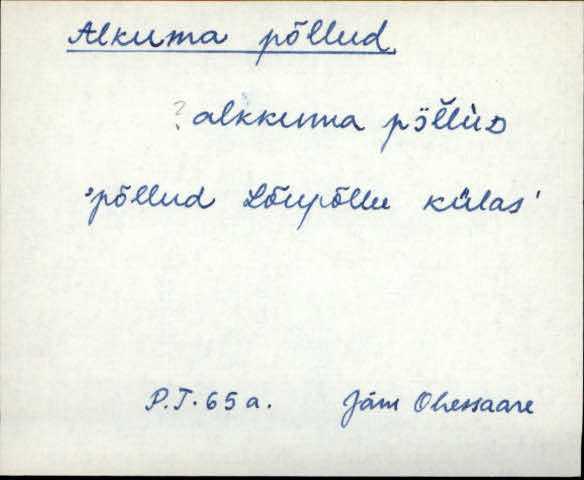 Alkuma põllud
? alkkuma põ̬l̆lùᴅ
'põllud Lõupõllu külas'
P.T. 65 a. Jäm Ohessaare